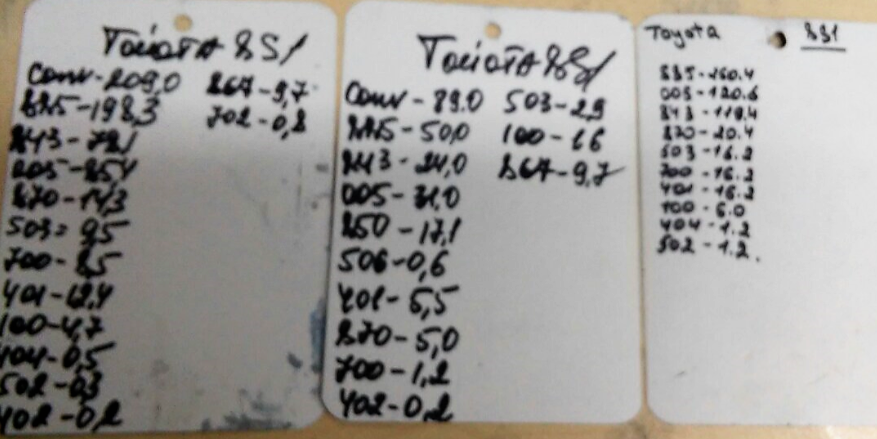 Toiota 8S1
Conv-209,0
885-198,3
843-78,1
005-85,1
870-14,3
503=9,5
700-8,5
401-12,4
100-4,7
404-0,5
502-0,3
402-0,2
867-9,7
702-0,8
Toiota 8S1
Conv-89.0
885-50,0
843-24,0
005-31,0
850-17,1
506-0,6
401-5,5
870-5,0
700-1,2
402-0,2
503-2,9
100-1,6
867-9,7
Toyota 8S1
885-260.4
003-120.6
843-119.4
870-20.4
503-16.2
700-16.2
401-16.2
100-6.0
404-1.2
502-1.2.